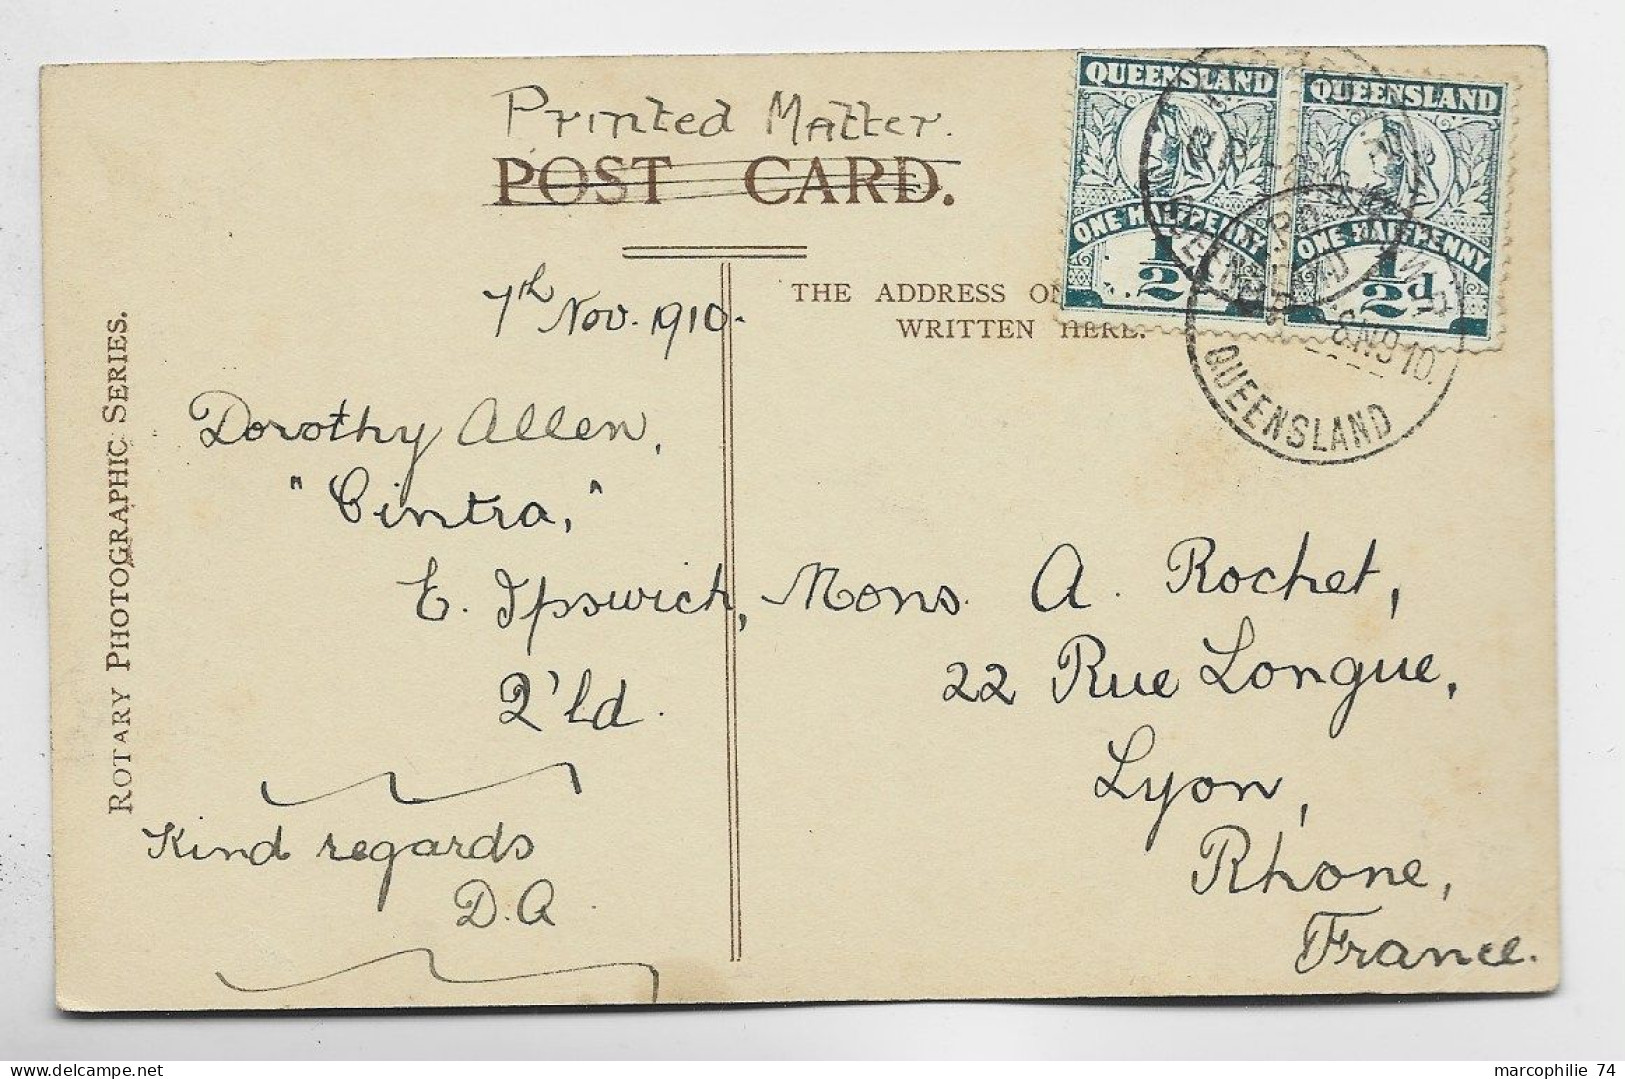 Printed Matter.
POST CARD.
QUEENSLAND
ONE HALFPENNY
1/2
QUEENSLAND
ONE HALFPENNY
1/2d
8 NO 10.
QUEENSLAND
THE ADDRESS
WRITTEN HERE.
7th Nov. 1910.
Dorothy Allen,
"Cintra,"
E. Ipswich,
Q'ld.
Kind regards
D.A.
Mons. A. Rochet,
22 Rue Longue,
Lyon,
Rhone,
France.
ROTARY PHOTOGRAPHIC SERIES.
marcophilie 74